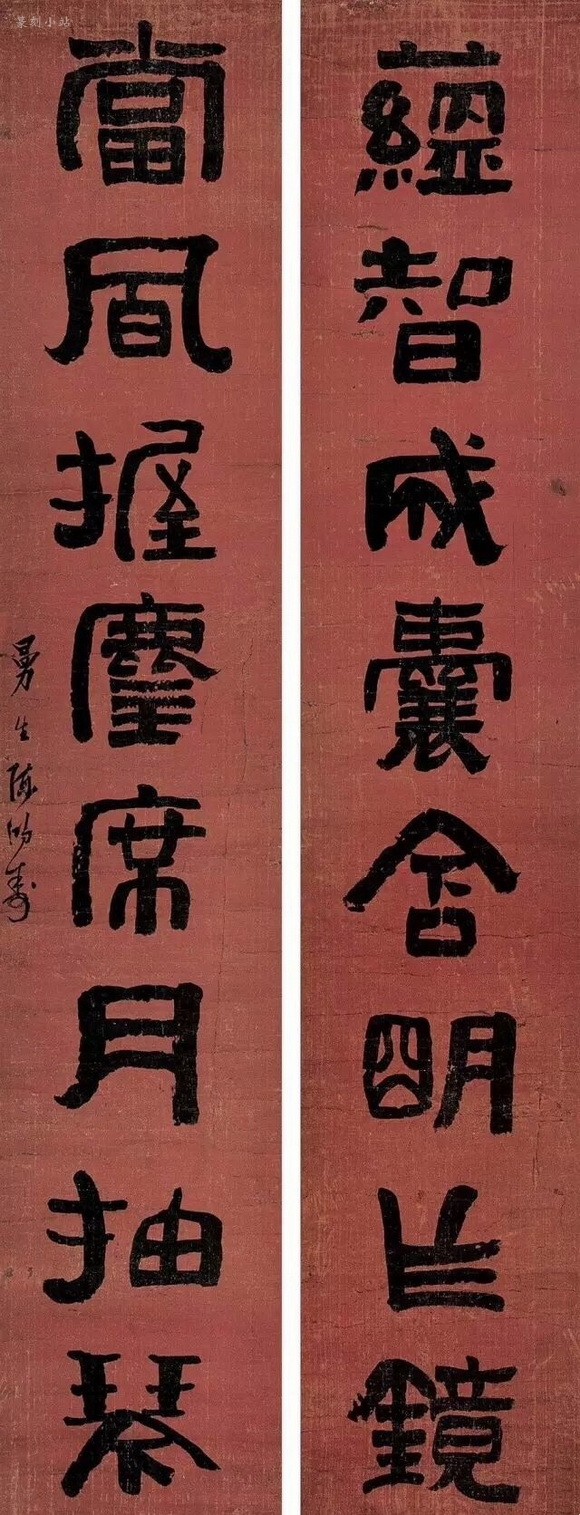 蕴智成囊含明作镜
當風握麈席月抽琴
曼生陳鴻壽
篆刻小站